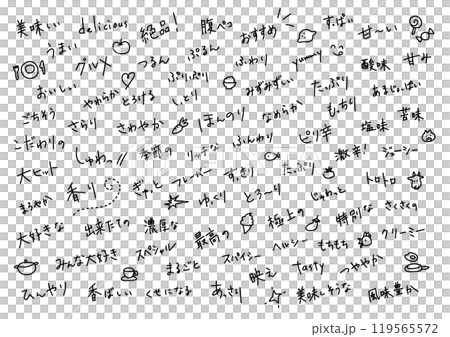 美味しい delicious 絶品! 腹ペコ おすすめ すっぱい 甘〜い
うまい グルメ つるん ぷるん ふわり yummy 酸味 甘み
おいしい やわらか とろける ぷりぷり しっとり みずみずしい たっぷり あまじょっぱい
ごちそう さらり さわやか ほんのり なめらか もっちり 塩味 苦味
こだわりの しゅわっ!! 季節の リッチな ふんわり ピリ辛 激辛! ジューシー
大ヒット 香り ぎゅっと フレーバー すっきり たっぷり トロトロ
まろやか ゆっくり とろ〜り じゅわっと さくさくの
大好きな 出来たての 濃厚な 最高の 極上の 特別な
みんな大好き スペシャル スパイシー ヘルシー もちもち クリーミー
ひんやり 香ばしい まるごと 映え tasty つややか
くせになる あっさり 美味しそうな 風味豊か
119565572